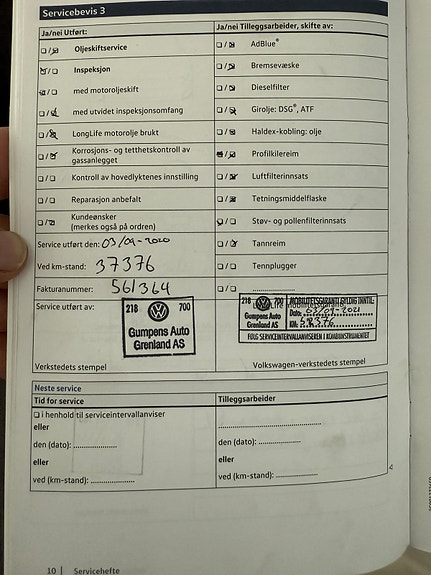 Servicebevis 3
Ja/nei Utført:
Ja/nei Tilleggsarbeider, skifte av:
Oljeskiftservice
AdBlue®
Inspeksjon
Bremsevæske
med motoroljeskift
Dieselfilter
med utvidet inspeksjonsomfang
Girolje: DSG®, ATF
LongLife motorolje brukt
Haldex-kobling: olje
Korrosjons- og tetthetskontroll av gassanlegget
Profilkilereim
Kontroll av hovedlyktenes innstilling
Luftfilterinnsats
Reparasjon anbefalt
Tetningsmiddelflaske
Kundeønsker
(merkes også på ordren)
Støv- og pollenfilterinnsats
Service utført den: 03/09-2020
Tannreim
Ved km-stand: 37376
Tennplugger
Fakturanummer: 561364
Service utført av:
218 700
Gumpens Auto
Grenland AS
218 700
Gumpens Auto
Grenland AS
MOBILITETSGARANTI GYLDIG INNTIL:
Dato: 03/09-2021
KM:
FØLG SERVICEINTERVALLANVISEREN I KOMBIINSTRUMENTET
Verkstedets stempel
Volkswagen-verkstedets stempel
Neste service
Tid for service
Tilleggsarbeider
i henhold til serviceintervallanviser
eller
den (dato): ....................
den (dato): ....................
eller
eller
ved (km-stand): ....................
ved (km-stand): ....................
10 | Servicehefte